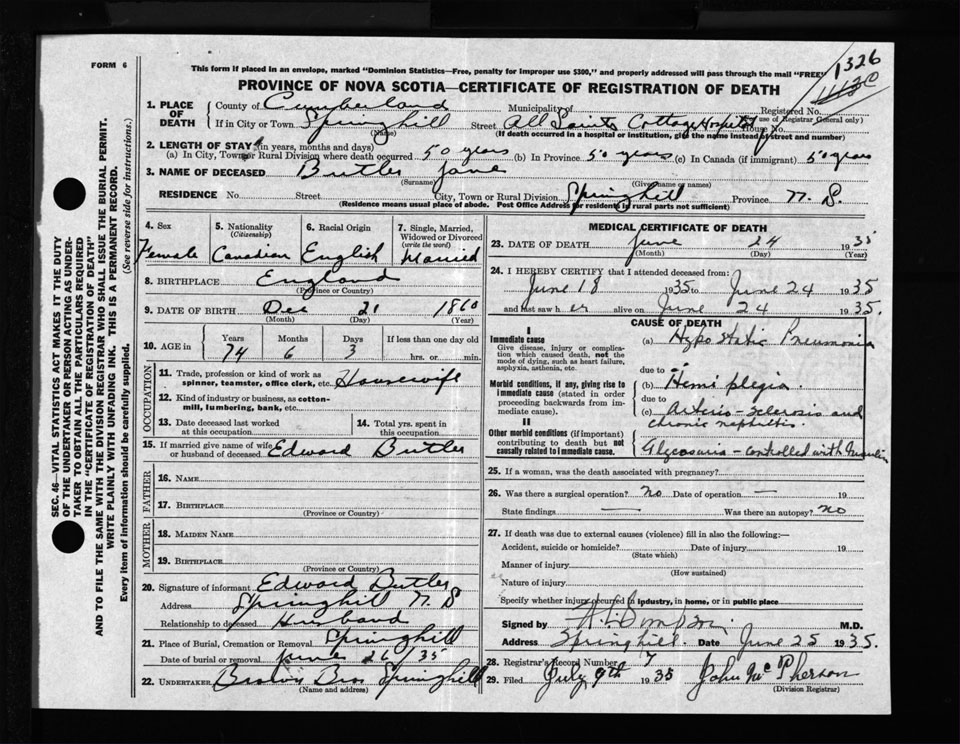 FORM 6
1326
This form if placed in an envelope, marked "Dominion Statistics—Free, penalty for improper use $300," and properly addressed will pass through the mail "FREE"
PROVINCE OF NOVA SCOTIA—CERTIFICATE OF REGISTRATION OF DEATH
1. PLACE OF DEATH
County of Cumberland Municipality of Registered No.
(use of Registrar General only)
If in City or Town Springhill Street All Saints Cottage Hospital House No.
(Name) (If death occurred in a hospital or institution, give the name instead of street and number)
2. LENGTH OF STAY (in years, months and days)
(a) In City, Town or Rural Division where death occurred 50 years (b) In Province 50 years (c) In Canada (if immigrant) 50 years
3. NAME OF DECEASED Butler Jane
(Surname) (Given name or names)
RESIDENCE No. Street City, Town or Rural Division Springhill Province N. S.
(Residence means usual place of abode. Post Office Address for residents in rural parts not sufficient)
4. Sex Female
5. Nationality (Citizenship) Canadian
6. Racial Origin English
7. Single, Married, Widowed or Divorced (write the word) Married
8. BIRTHPLACE England
(Province or Country)
9. DATE OF BIRTH Dec 21 1860
(Month) (Day) (Year)
10. AGE in Years Months Days If less than one day old
74 6 3 hrs. or min.
OCCUPATION
11. Trade, profession or kind of work as spinner, teamster, office clerk, etc. Housewife
12. Kind of industry or business, as cotton-mill, lumbering, bank, etc.
13. Date deceased last worked at this occupation
14. Total yrs. spent in this occupation
15. If married give name of wife or husband of deceased Edward Butler
FATHER
16. NAME
17. BIRTHPLACE
(Province or Country)
MOTHER
18. MAIDEN NAME
19. BIRTHPLACE
(Province or Country)
20. Signature of informant Edward Butler
Address Springhill N. S
Relationship to deceased Husband
21. Place of Burial, Cremation or Removal Springhill
Date of burial or removal June 26 1935
22. UNDERTAKER Brown Bros Springhill
(Name and address)
MEDICAL CERTIFICATE OF DEATH
23. DATE OF DEATH June 24 1935
(Month) (Day) (Year)
24. I HEREBY CERTIFY that I attended deceased from:
June 18 1935 to June 24 1935
and last saw her alive on June 24 1935.
CAUSE OF DEATH
I
Immediate cause
Give disease, injury or complication which caused death, not the mode of dying, such as heart failure, asphyxia, asthenia, etc.
(a) Hypo static Pneumonia
due to
Morbid conditions, if any, giving rise to immediate cause (stated in order proceeding backwards from immediate cause).
(b) Hemi plegia.
due to
(c) Arterio-sclerosis and chronic nephritis.
II
Other morbid conditions (if important) contributing to death but not causally related to immediate cause.
Glycosuria - controlled with Insulin
25. If a woman, was the death associated with pregnancy?
26. Was there a surgical operation? no Date of operation — 19
State findings — Was there an autopsy? no
27. If death was due to external causes (violence) fill in also the following:—
Accident, suicide or homicide? Date of injury 19
(State which)
Manner of injury
(How sustained)
Nature of injury
Specify whether injury occurred in industry, in home, or in public place
Signed by M.D.
Address Springhill Date June 25 1935.
28. Registrar's Record Number 17
29. Filed July 9th 1935 John McPherson
(Division Registrar)
SEC. 46—VITAL STATISTICS ACT MAKES IT THE DUTY OF THE UNDERTAKER OR PERSON ACTING AS UNDERTAKER TO OBTAIN ALL THE PARTICULARS REQUIRED IN THE "CERTIFICATE OF REGISTRATION OF DEATH"
AND TO FILE THE SAME WITH THE DIVISION REGISTRAR WHO SHALL ISSUE THE BURIAL PERMIT.
WRITE PLAINLY WITH UNFADING INK. THIS IS A PERMANENT RECORD.
Every item of information should be carefully supplied. (See reverse side for instructions.)